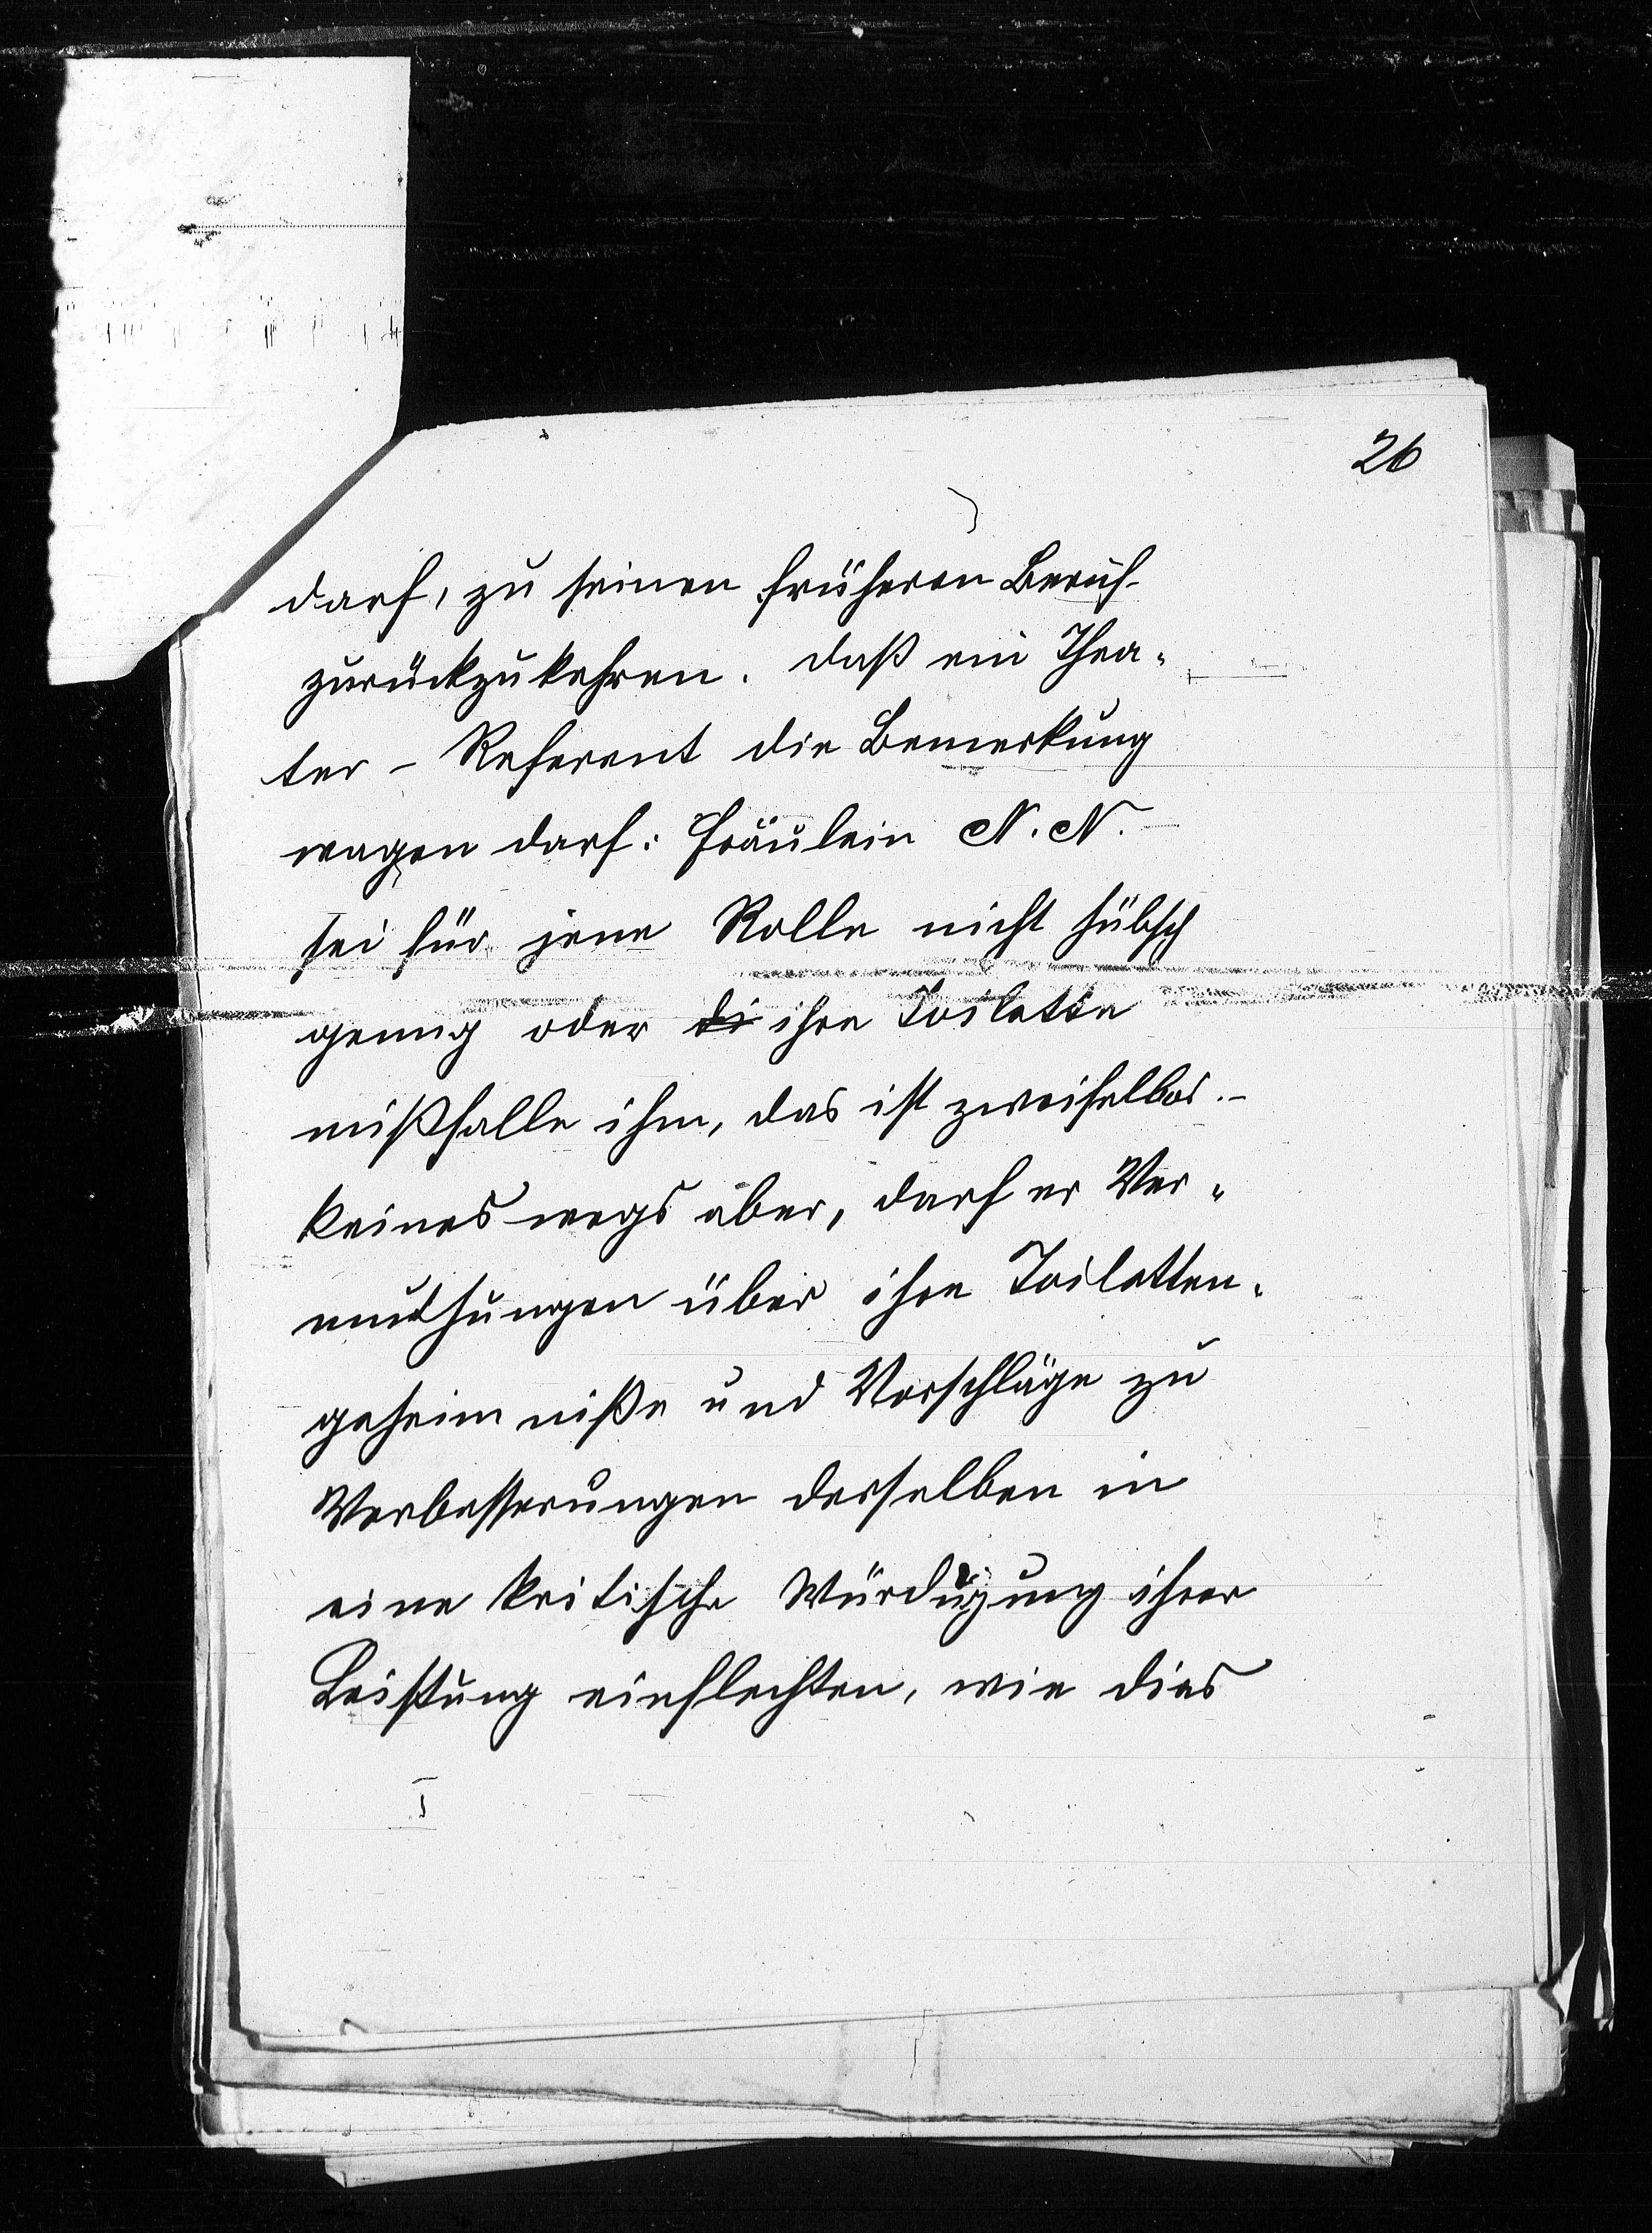 26
darf, zu seinen früheren Beruf
zurückzukehren. Daß ein Thea-
ter - Referent die Bemerkung
wagen darf: Fräulein N. N.
sei für jene Rolle nicht hübsch
genug oder di ihre Toilette
mißfalle ihm, das ist zweifellos. -
keineswegs aber, darf er Ver-
muthungen über ihre Toiletten-
geheimniße und Vorschläge zu
Verbesserungen derselben in
eine kritische Würdigung ihrer
Leistung einflechten, wie dies